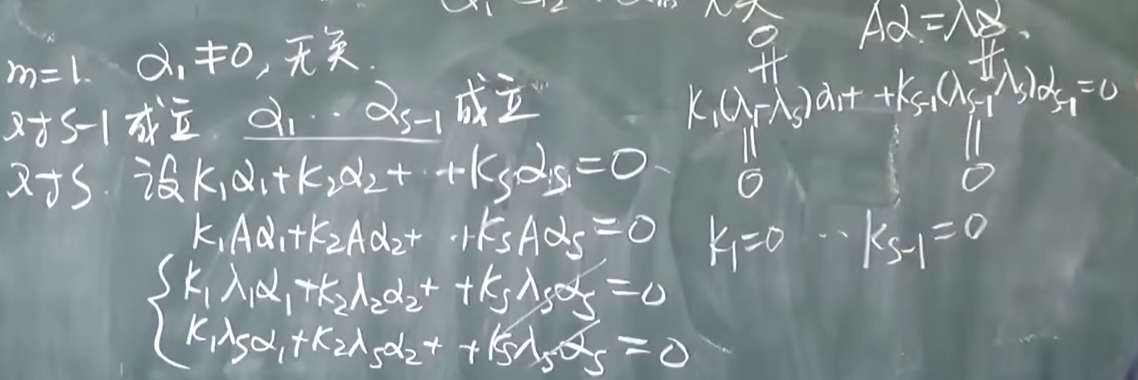 m=1. α₁≠0, 无关.
对于S-1成立 α₁ ‥ α_{S-1} 成立
对于S. 设k₁α₁+k₂α₂+ ‥ +k_Sα_S=0
k₁Aα₁+k₂Aα₂+ ‥ +k_SAα_S=0
k₁λ₁α₁+k₂λ₂α₂+ +k_Sλ_Sα_S=0
k₁λ_Sα₁+k₂λ_Sα₂+ +k_Sλ_Sα_S=0
Aα=λα.
0
≠
k₁(λ₁-λ_S)α₁+ +k_{S-1}(λ_{S-1}-λ_S)α_{S-1}=0
0 0
k₁=0 ‥ k_{S-1}=0